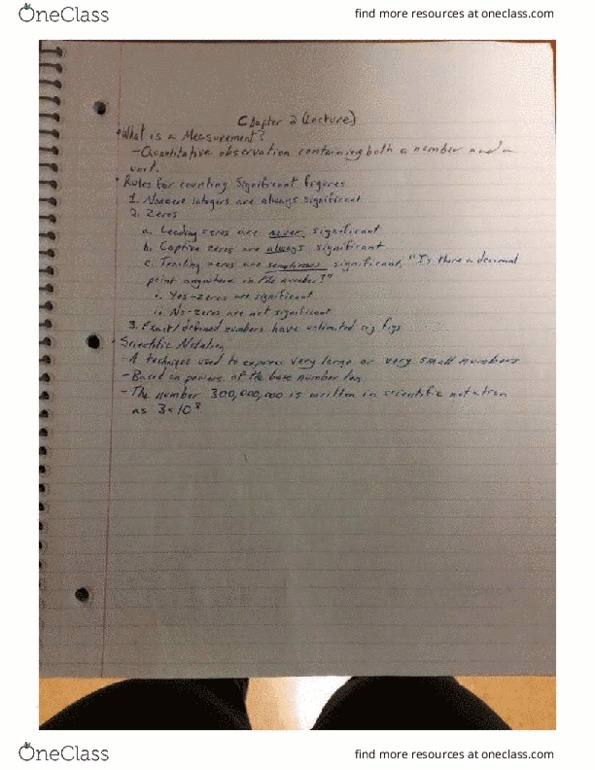 OneClass
find more resources at oneclass.com
Chapter 2 (Lecture)
• What is a Measurement?
- Quantitative observation containing both a number and a
unit.
• Rules for counting significant figures
1. Nonzero integers are always significant
2. Zeros
a. Leading zeros are never significant
b. Captive zeros are always significant
c. Trailing zeros are sometimes significant, "Is there a decimal
point anywhere in the number?"
i. Yes - zeros are significant
ii. No - zeros are not significant
3. Exact/defined numbers have unlimited sig figs
• Scientific Notation
- A technique used to express very large or very small numbers
- Based on powers of the base number ten
- The number 300,000,000 is written in scientific notation
as 3×10⁸
OneClass
find more resources at oneclass.com